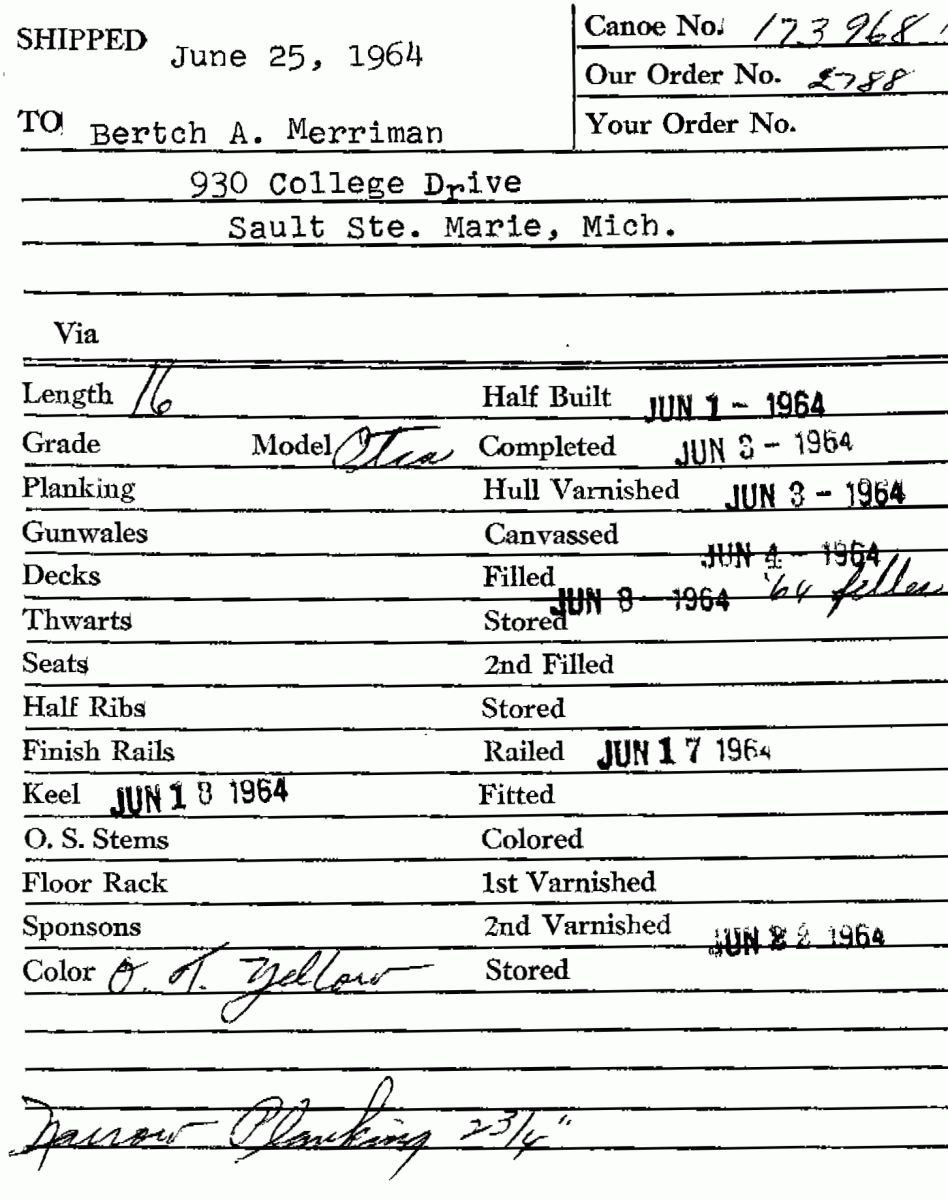 SHIPPED June 25, 1964
Canoe No. 173968
Our Order No. 2788
TO Bertch A. Merriman
Your Order No.
930 College Drive
Sault Ste. Marie, Mich.
Via
Length 16 Half Built JUN 1 - 1964
Grade Model Otca Completed JUN 3 - 1964
Planking Hull Varnished JUN 3 - 1964
Gunwales Canvassed JUN 4 - 1964
Decks Filled JUN 8 - 1964 '64 filler
Thwarts Stored
Seats 2nd Filled
Half Ribs Stored
Finish Rails Railed JUN 17 1964
Keel JUN 18 1964 Fitted
O. S. Stems Colored
Floor Rack 1st Varnished
Sponsons 2nd Varnished JUN 22 1964
Color O. T. Yellow Stored
Narrow Planking 2 3/4"